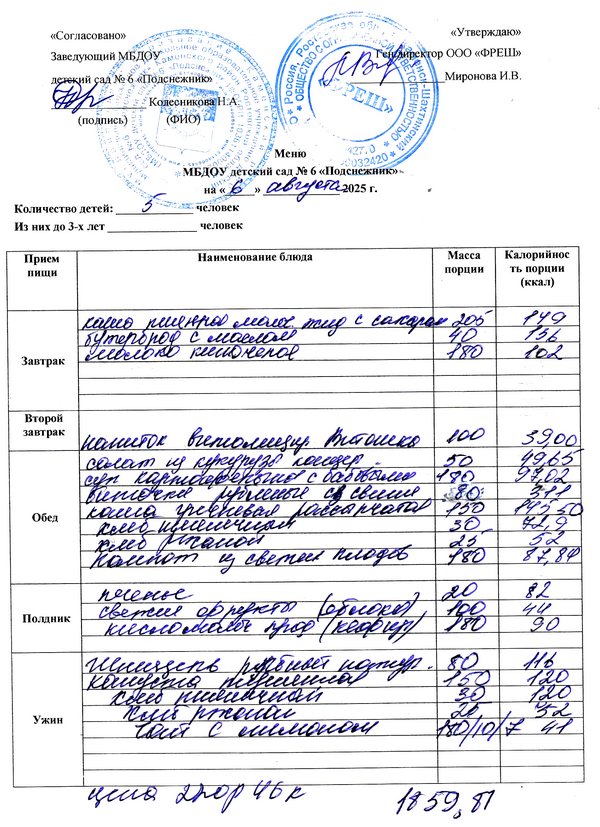 «Согласовано» «Утверждаю»
Заведующий МБДОУ Ген.директор ООО «ФРЕШ»
детский сад № 6 «Подснежник» Миронова И.В.
Колесникова Н.А.
(подпись) (ФИО)
«ФРЕШ»
Меню
МБДОУ детский сад № 6 «Подснежник»
на « 6 » августа 2025 г.
Количество детей: 5 человек
Из них до 3-х лет человек
Прием пищи Наименование блюда Масса порции Калорийнос ть порции (ккал)
Завтрак
каша молоч. жид с сахаром 205 149
бутерброд с маслом 40 136
молоко кипяченое 180 102
Второй завтрак
напиток витаминизир. Витошка 100 39,00
Обед
салат из кукурузы консер. 50 49,65
суп картофельный с бобовыми 180 97,02
биточки рубленые из свинин 80 311
каша гречневая рассыпчатая 150
хлеб пшеничный 30 72,9
хлеб ржаной 25 52
Компот из свежих плодов 180 87,84
Полдник
печенье 20 82
свежие фрукты (яблоко) 100 44
кисломолоч прод (кефир) 180 90
Ужин
Шницель рыбный натур. 80 116
капуста тушенная 150 120
хлеб пшеничный 30 120
хлеб ржаной 25 52
Чай с лимоном 180/10/7 41
цена 46 к 1859,81